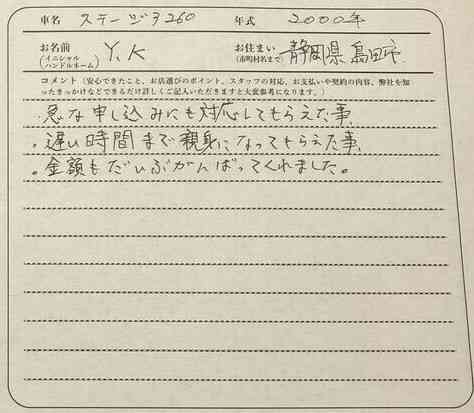 車名 ステージア260 年式 2000年
お名前 (イニシャル ハンドルネーム) Y.K お住まい (市町村名まで) 静岡県 島田市
コメント（安心できたこと、お店選びのポイント、スタッフの対応、お支払いや契約の内容、弊社を知
ったきっかけなどをできるだけ詳しくご記入いただきますと大変参考になります。）
・急な申し込みにも対応してもらえた事、
・遅い時間まで親身になってもらえた事、
。金額もだいぶがんばってくれました。